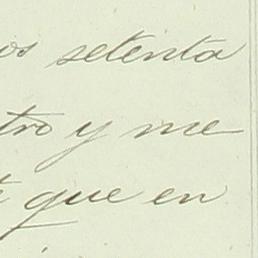 os setenta
tro y me
que en